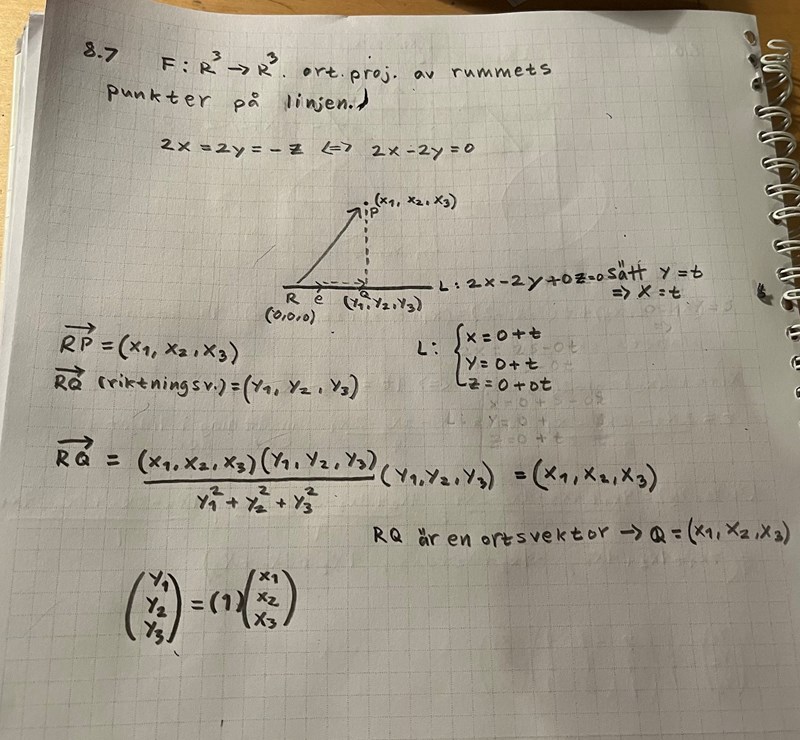 8.7 F: R³ → R³. ort. proj. av rummets
punkter på linjen.
2x = 2y = -z <=> 2x - 2y = 0
P (x₁, x₂, x₃)
R e Q L: 2x - 2y + 0z = 0 sätt y = t
(0,0,0) (y₁, y₂, y₃) => x = t
RP→ = (x₁, x₂, x₃)
RQ→ (riktningsv.) = (y₁, y₂, y₃)
L: { x = 0 + t
y = 0 + t
z = 0 + 0t
RQ→ = (x₁, x₂, x₃)(y₁, y₂, y₃) / y₁² + y₂² + y₃² (y₁, y₂, y₃) = (x₁, x₂, x₃)
RQ är en ortsvektor → Q = (x₁, x₂, x₃)
(y₁ y₂ y₃) = (1) (x₁ x₂ x₃)